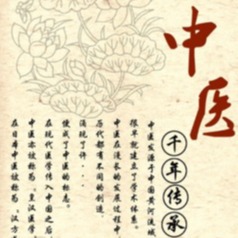 中医
千年传承
中医发源于中国黄河流域
很早就建立了学术体系
中医在漫长的发展过程中
历代都有不同的创造
涌现了许
使成了中医的标志
在现代医学传入中国之后
中医亦被称为“皇汉医学
在日本中医被称为“汉方